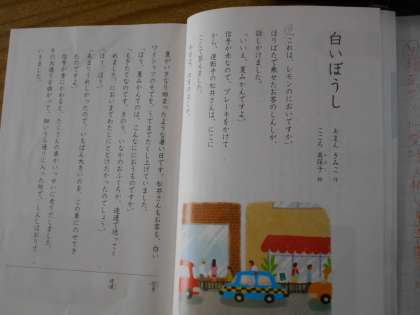 白いぼうし
あまん きみこ 作
「これは、レモンのにおいですか。」
ほりばたで乗せたお客のしんしが、
話しかけました。
「いいえ、夏みかんですよ。」
信号が赤なので、ブレーキをかけて
から、運転手の松井さんは、にこに
こして答えました。
夏がいきなり始まったような暑い日です。松井さんもお客も、白い
ワイシャツのそでを、うでまでたくし上げていました。
「ほう、夏みかんてのは、こんなににおうものですか。」
「もぎたてなのです。きのう、いなかのおふくろが、速達で送ってく
れました。においまでわたしにとどけたかったのでしょう。」
「ほう、ほう。」
「あまりうれしかったので、いちばん大きいのを、この車にのせてき
たのですよ。」
信号が青にかわると、たくさんの車がいっせいに走りだしました。
その大通りを曲がって、細いうら通りに入った所で、しんしはおりて
いきました。